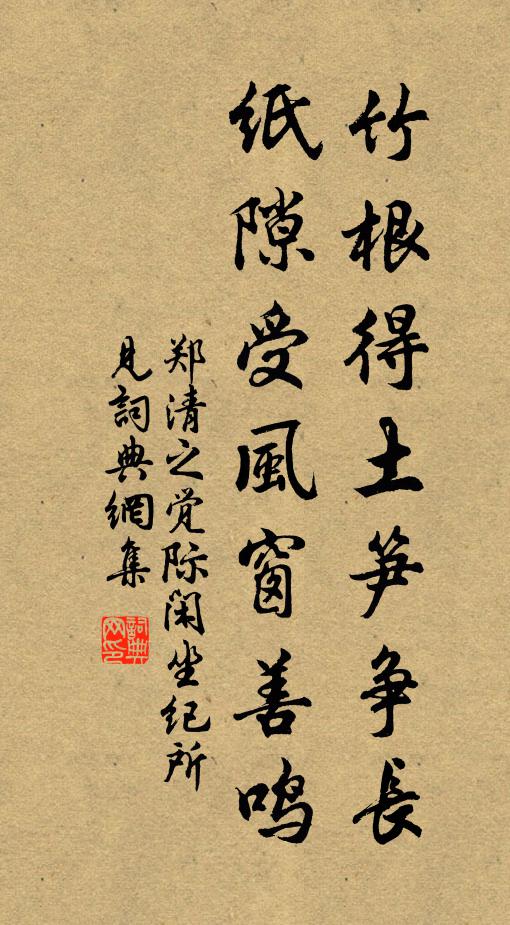 竹根得土笋争长
纸隙受風窗善鸣
郑清之觉际闲坐纪所
見詞典網集
詞典网印